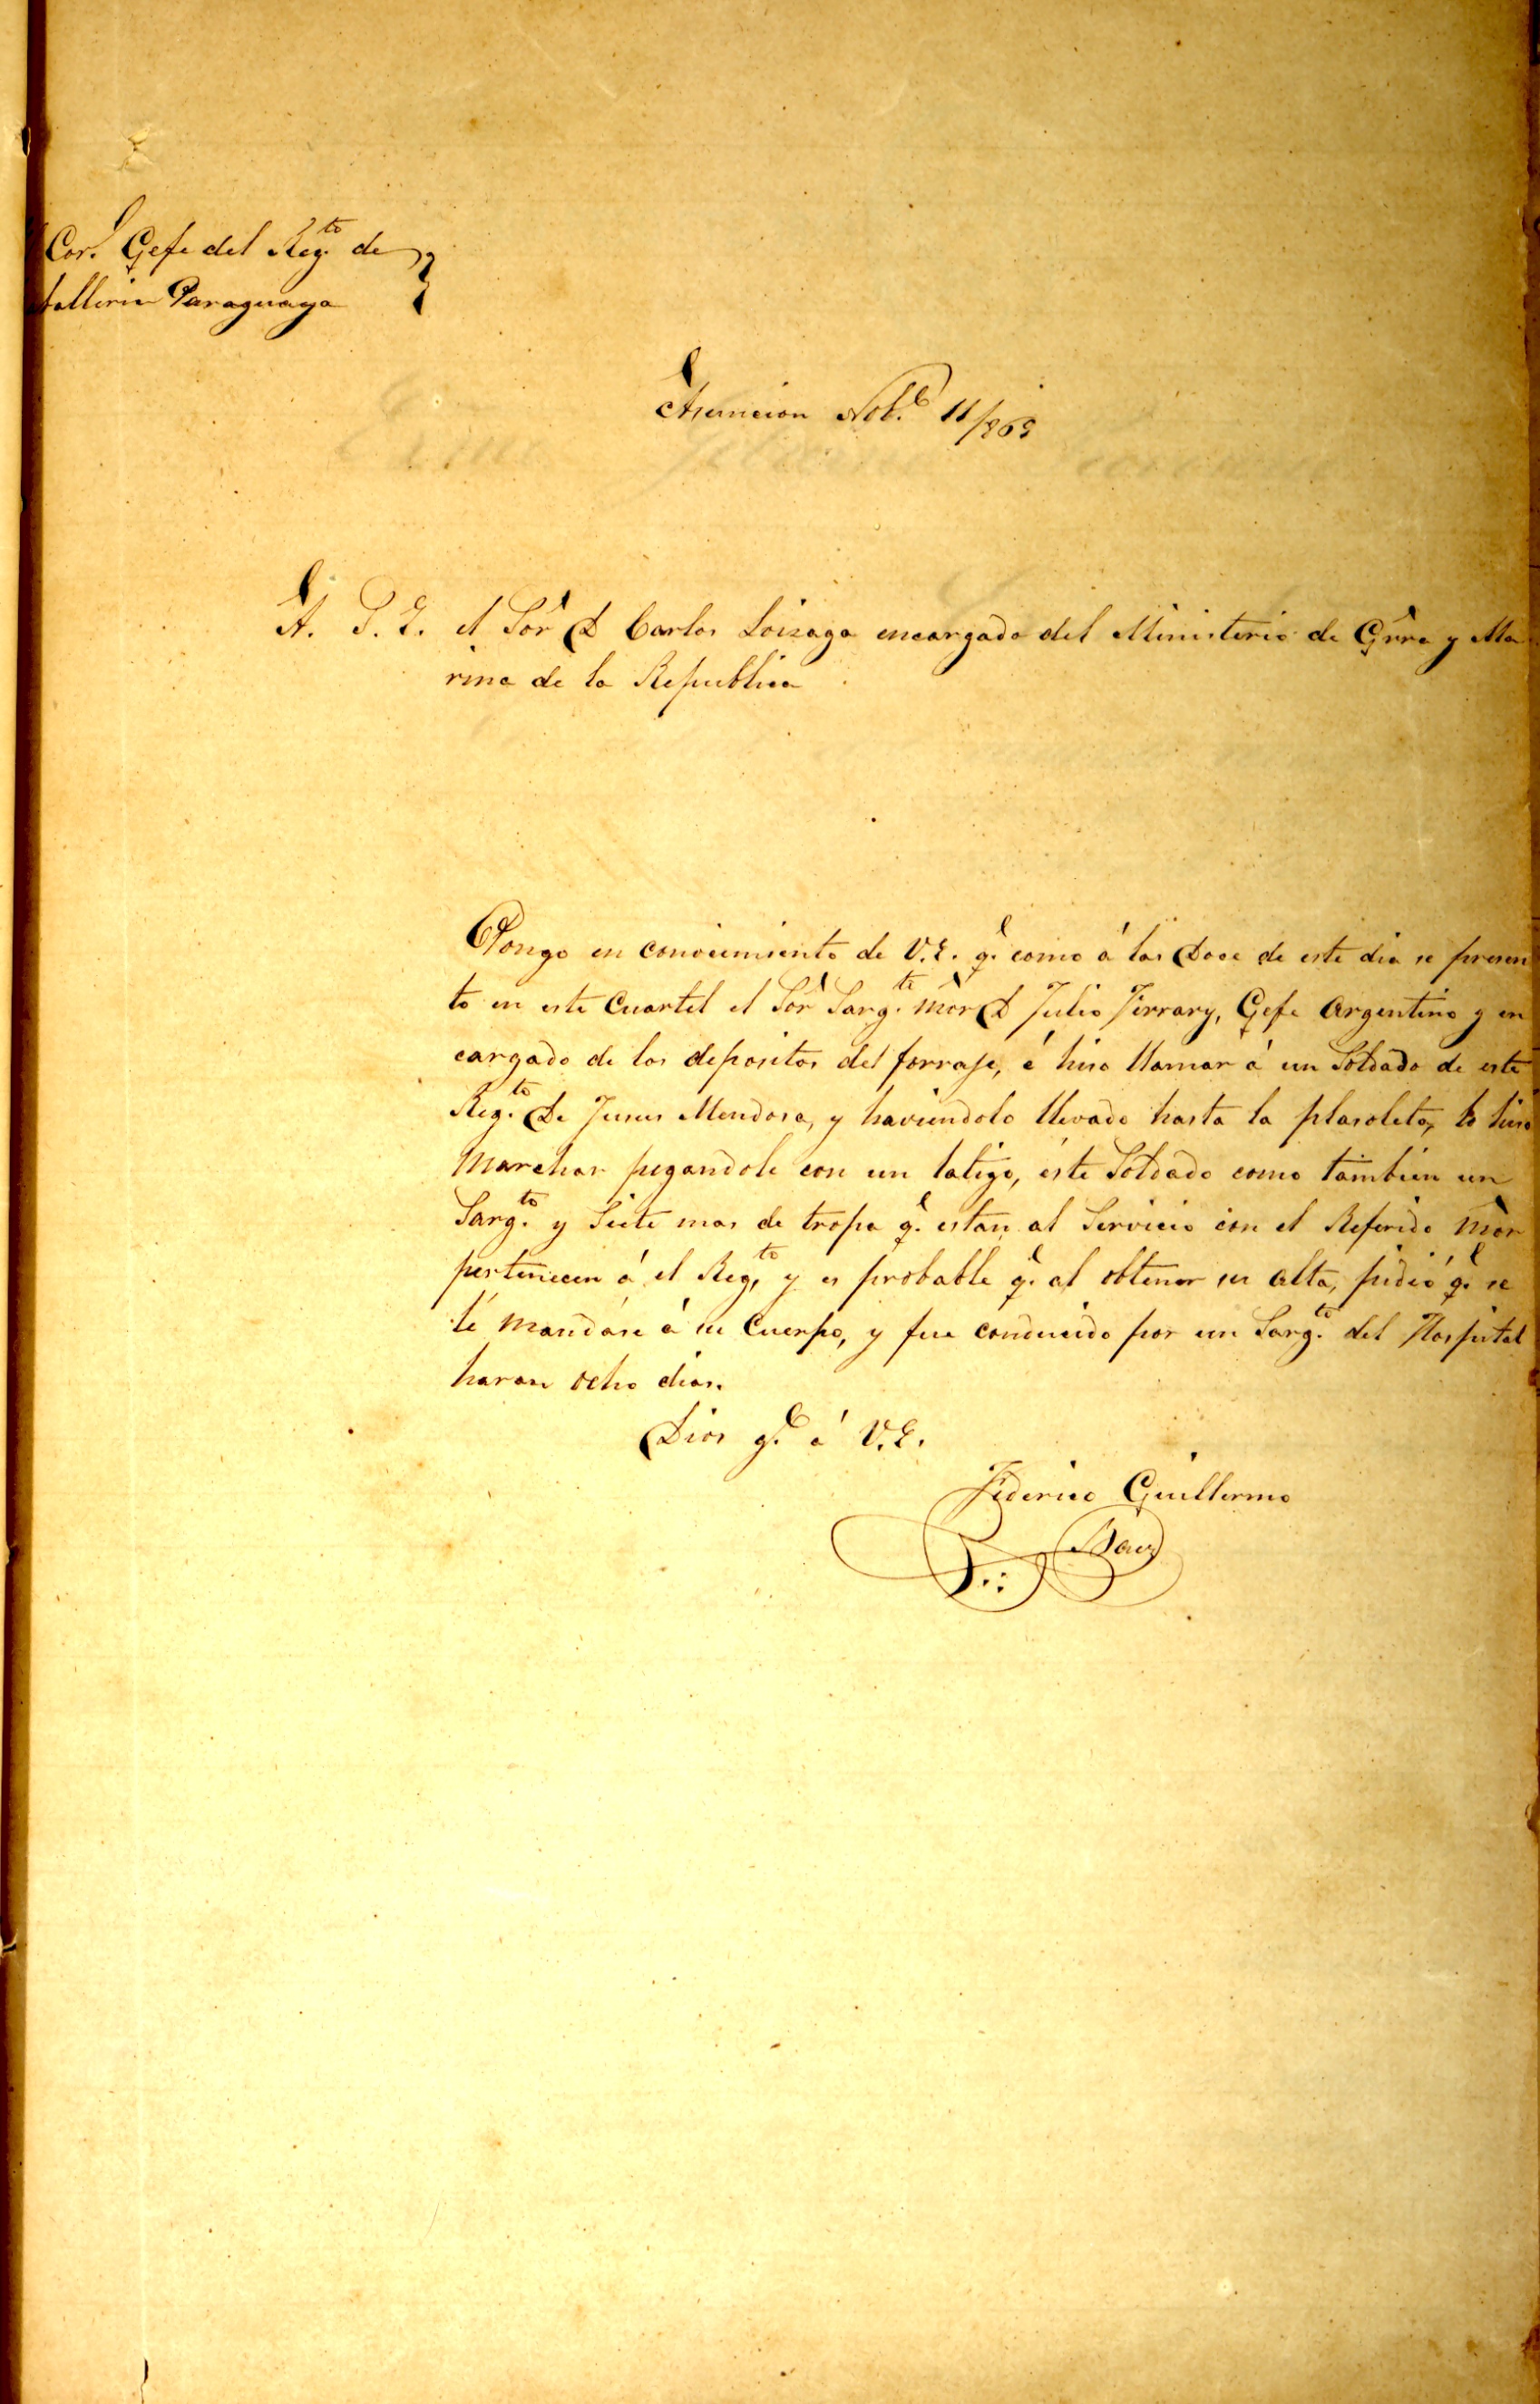 Cor.l Gefe del Reg.to de
talleria Paraguaya
Asuncion Nob.e 11/869
A. S. E. el Sor D Carlos Loizaga encargado del Ministerio de Grra y Ma
rina de la Republica
Pongo en conocimiento de V.E. q.e como á las Doce de este dia se presen
to en este Cuartel el Sor Sarg.to mor D Julio Ferrary, Gefe Argentino y en
cargado de los depositos del forraje, é hiso llamar á un Soldado de este
Reg.to De Jesus Mendosa, y haviendolo llevado hasta la plasoleta, lo hiso
Marchar pegandole con un latigo, éste Soldado como tambien un
Sarg.to y Siete mas de tropa q.e estan al Servicio con el Referido Mor
pertenecen á el Reg.to y es probable q.e al obtener su alta, pidió q.e se
lé mandáse á su Cuerpo, y fue conducido por un Sarg.to del Hospital
haran ocho dias.
Dios g.e á V.E.
Federico Guillermo
Baez